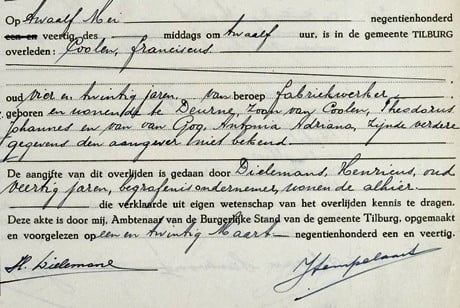 Op twaalf Mei negentienhonderd
een en veertig, des middags om twaalf uur, is in de gemeente TILBURG
overleden: Coolen, Franciscus
oud vier en twintig jaren, van beroep fabriekwerker
geboren en wonende te Deurne, zoon van Coolen, Theodorus
Johannes en van van Gog, Antonia Adriana, zijnde verdere
gegevens den aangever niet bekend.
De aangifte van dit overlijden is gedaan door Dielemans, Henricus, oud
veertig jaren, begrafenisondernemer, wonende alhier
die verklaarde uit eigen wetenschap van het overlijden kennis te dragen.
Deze akte is door mij, Ambtenaar van de Burgerlijke Stand van de gemeente Tilburg, opgemaakt
en voorgelezen op een en twintig Maart negentienhonderd een en veertig.
H. Dielemans